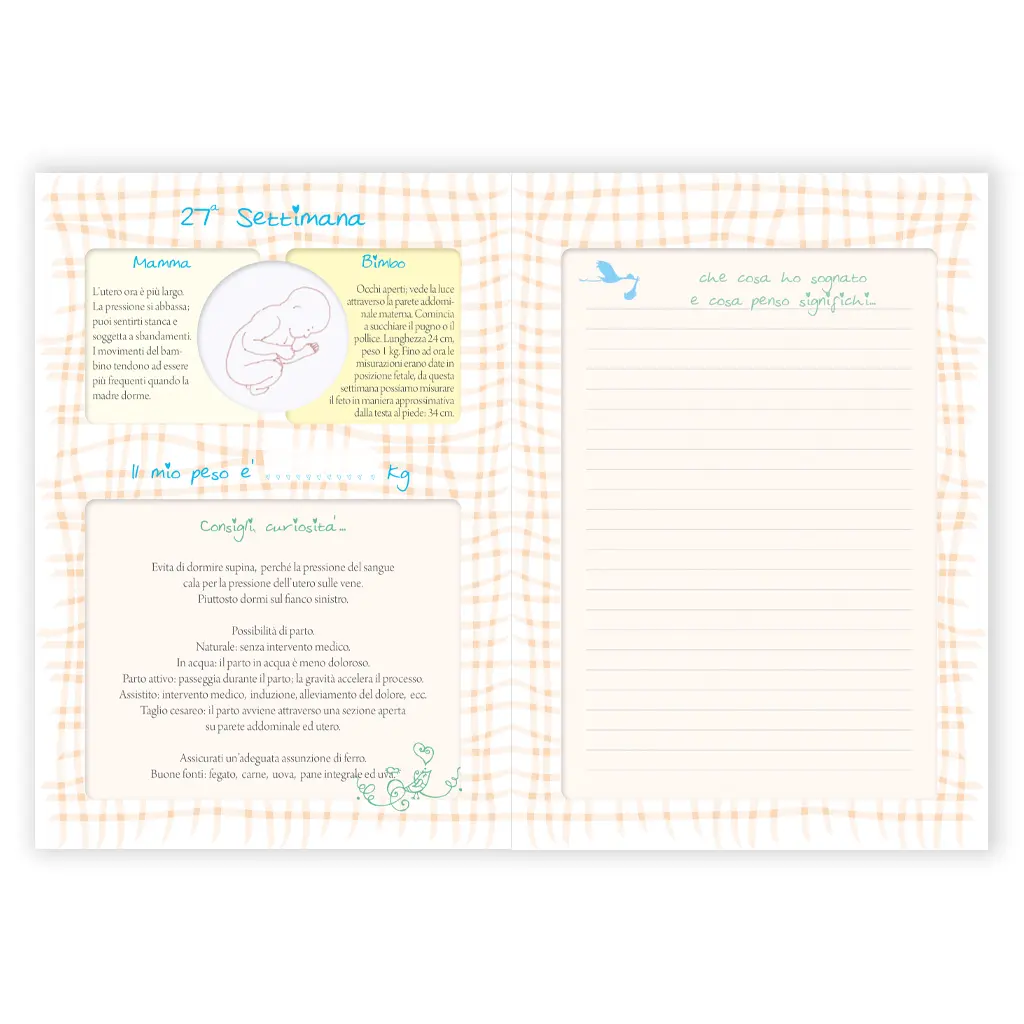 27ª Settimana
Mamma
L'utero ora è più largo.
La pressione si abbassa;
puoi sentirti stanca e
soggetta a sbandamenti.
I movimenti del bam-
bino tendono ad essere
più frequenti quando la
madre dorme.
Bimbo
Occhi aperti; vede la luce
attraverso la parete addomi-
nale materna. Comincia
a succhiare il pugno o il
pollice. Lunghezza 24 cm,
peso 1 kg. Fino ad ora le
misurazioni erano date in
posizione fetale, da questa
settimana possiamo misurare
il feto in maniera approssimativa
dalla testa al piede: 34 cm.
Il mio peso e' ........... Kg
Consigli, curiosita'...
Evita di dormire supina, perché la pressione del sangue
cala per la pressione dell'utero sulle vene.
Piuttosto dormi sul fianco sinistro.
Possibilità di parto.
Naturale: senza intervento medico.
In acqua: il parto in acqua è meno doloroso.
Parto attivo: passeggia durante il parto; la gravità accelera il processo.
Assistito: intervento medico, induzione, alleviamento del dolore, ecc.
Taglio cesareo: il parto avviene attraverso una sezione aperta
su parete addominale ed utero.
Assicurati un'adeguata assunzione di ferro.
Buone fonti: fegato, carne, uova, pane integrale ed uva.
che cosa ho sognato
e cosa penso significhi...